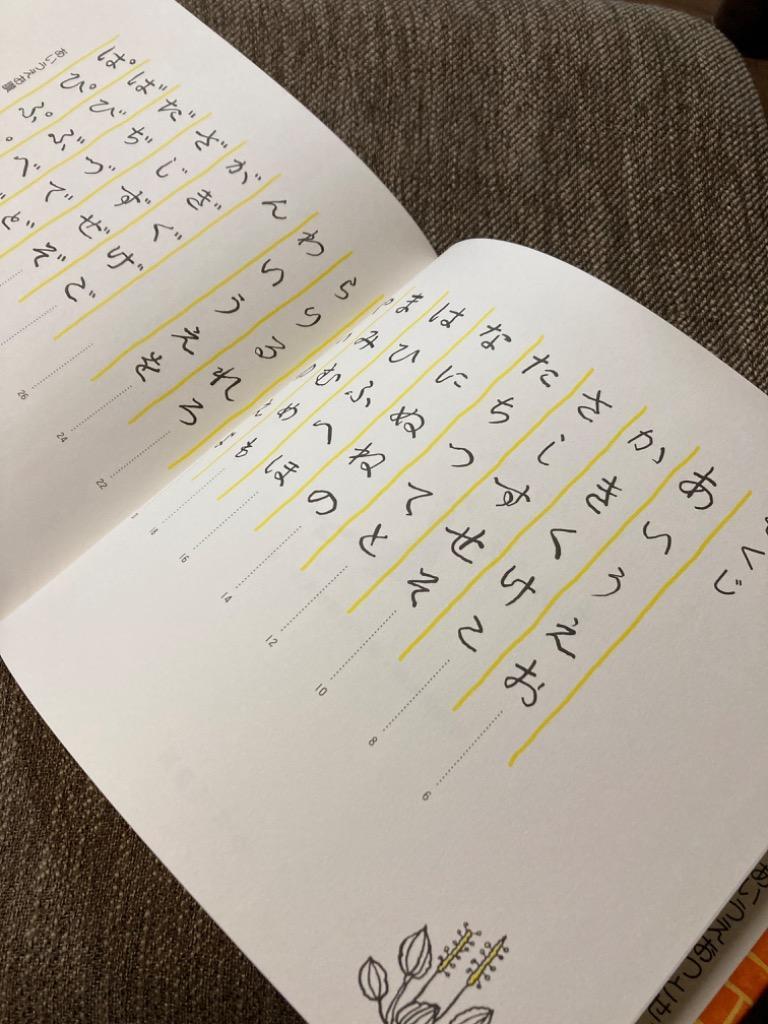 くじ
あいうえお 6
かきくけこ 8
さしすせそ 10
たちつてと 12
なにぬねの 14
はひふへほ 16
まみむめも 18
らりるれろ 22
わいうえを 24
ん 26
がぎぐげご
ざじずぜぞ
だぢづでど
ばびぶべ
ぱぴぷ
あいうえお
あいうえお